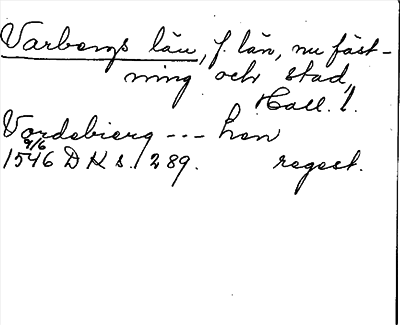 Varbergs län, f. län, nu fäst-
ning och stad,
Hall. l.
Vordsbierg --- len
9/6
1546 DKs. 1289. regest.